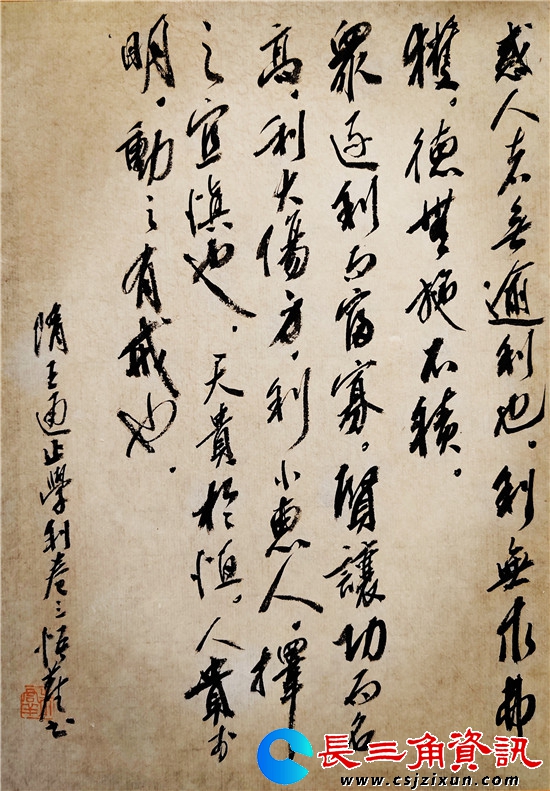 惑人者無逾利也。利無求弗
獲。德無施不積。
眾逐利而富寡。賢讓功而名
高。利大傷身，利小惠人。擇
之宜慎也。天貴於慎。人貴於
明。動之有戒也。
隋王通止學利卷三 書
長三角資訊
www.csjzixun.com